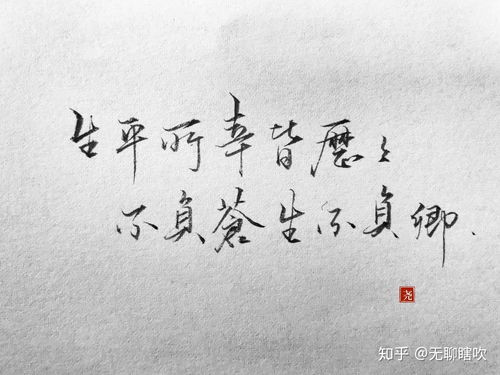 生平所幸皆歷歷
不負蒼生不負卿.
尧
知乎 @无聊瞎吹